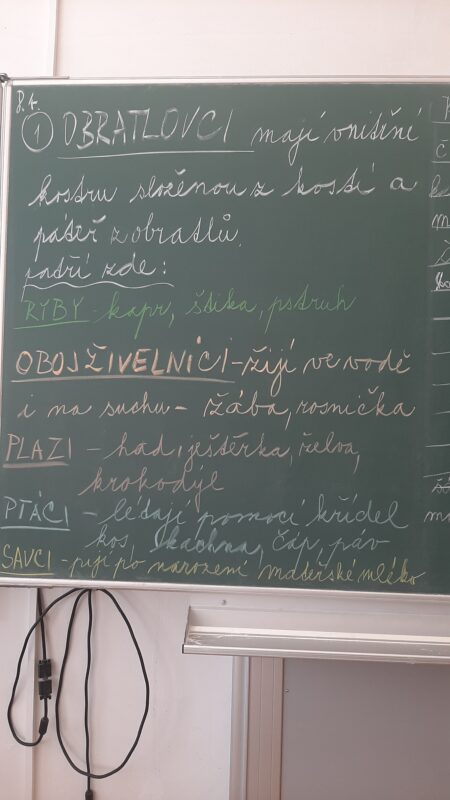 8.4.
① OBRATLOVCI mají vnitřní
kostru složenou z kostí a
páteř z obratlů.
patří zde:
RYBY - kapr, štika, pstruh
OBOJŽIVELNÍCI - žijí ve vodě
i na suchu - žába, rosnička
PLAZI - had, ještěrka, želva,
krokodýl
PTÁCI - létají pomocí křídel
kos, kachna, čáp, páv
SAVCI - pijí po narození mateřské mléko